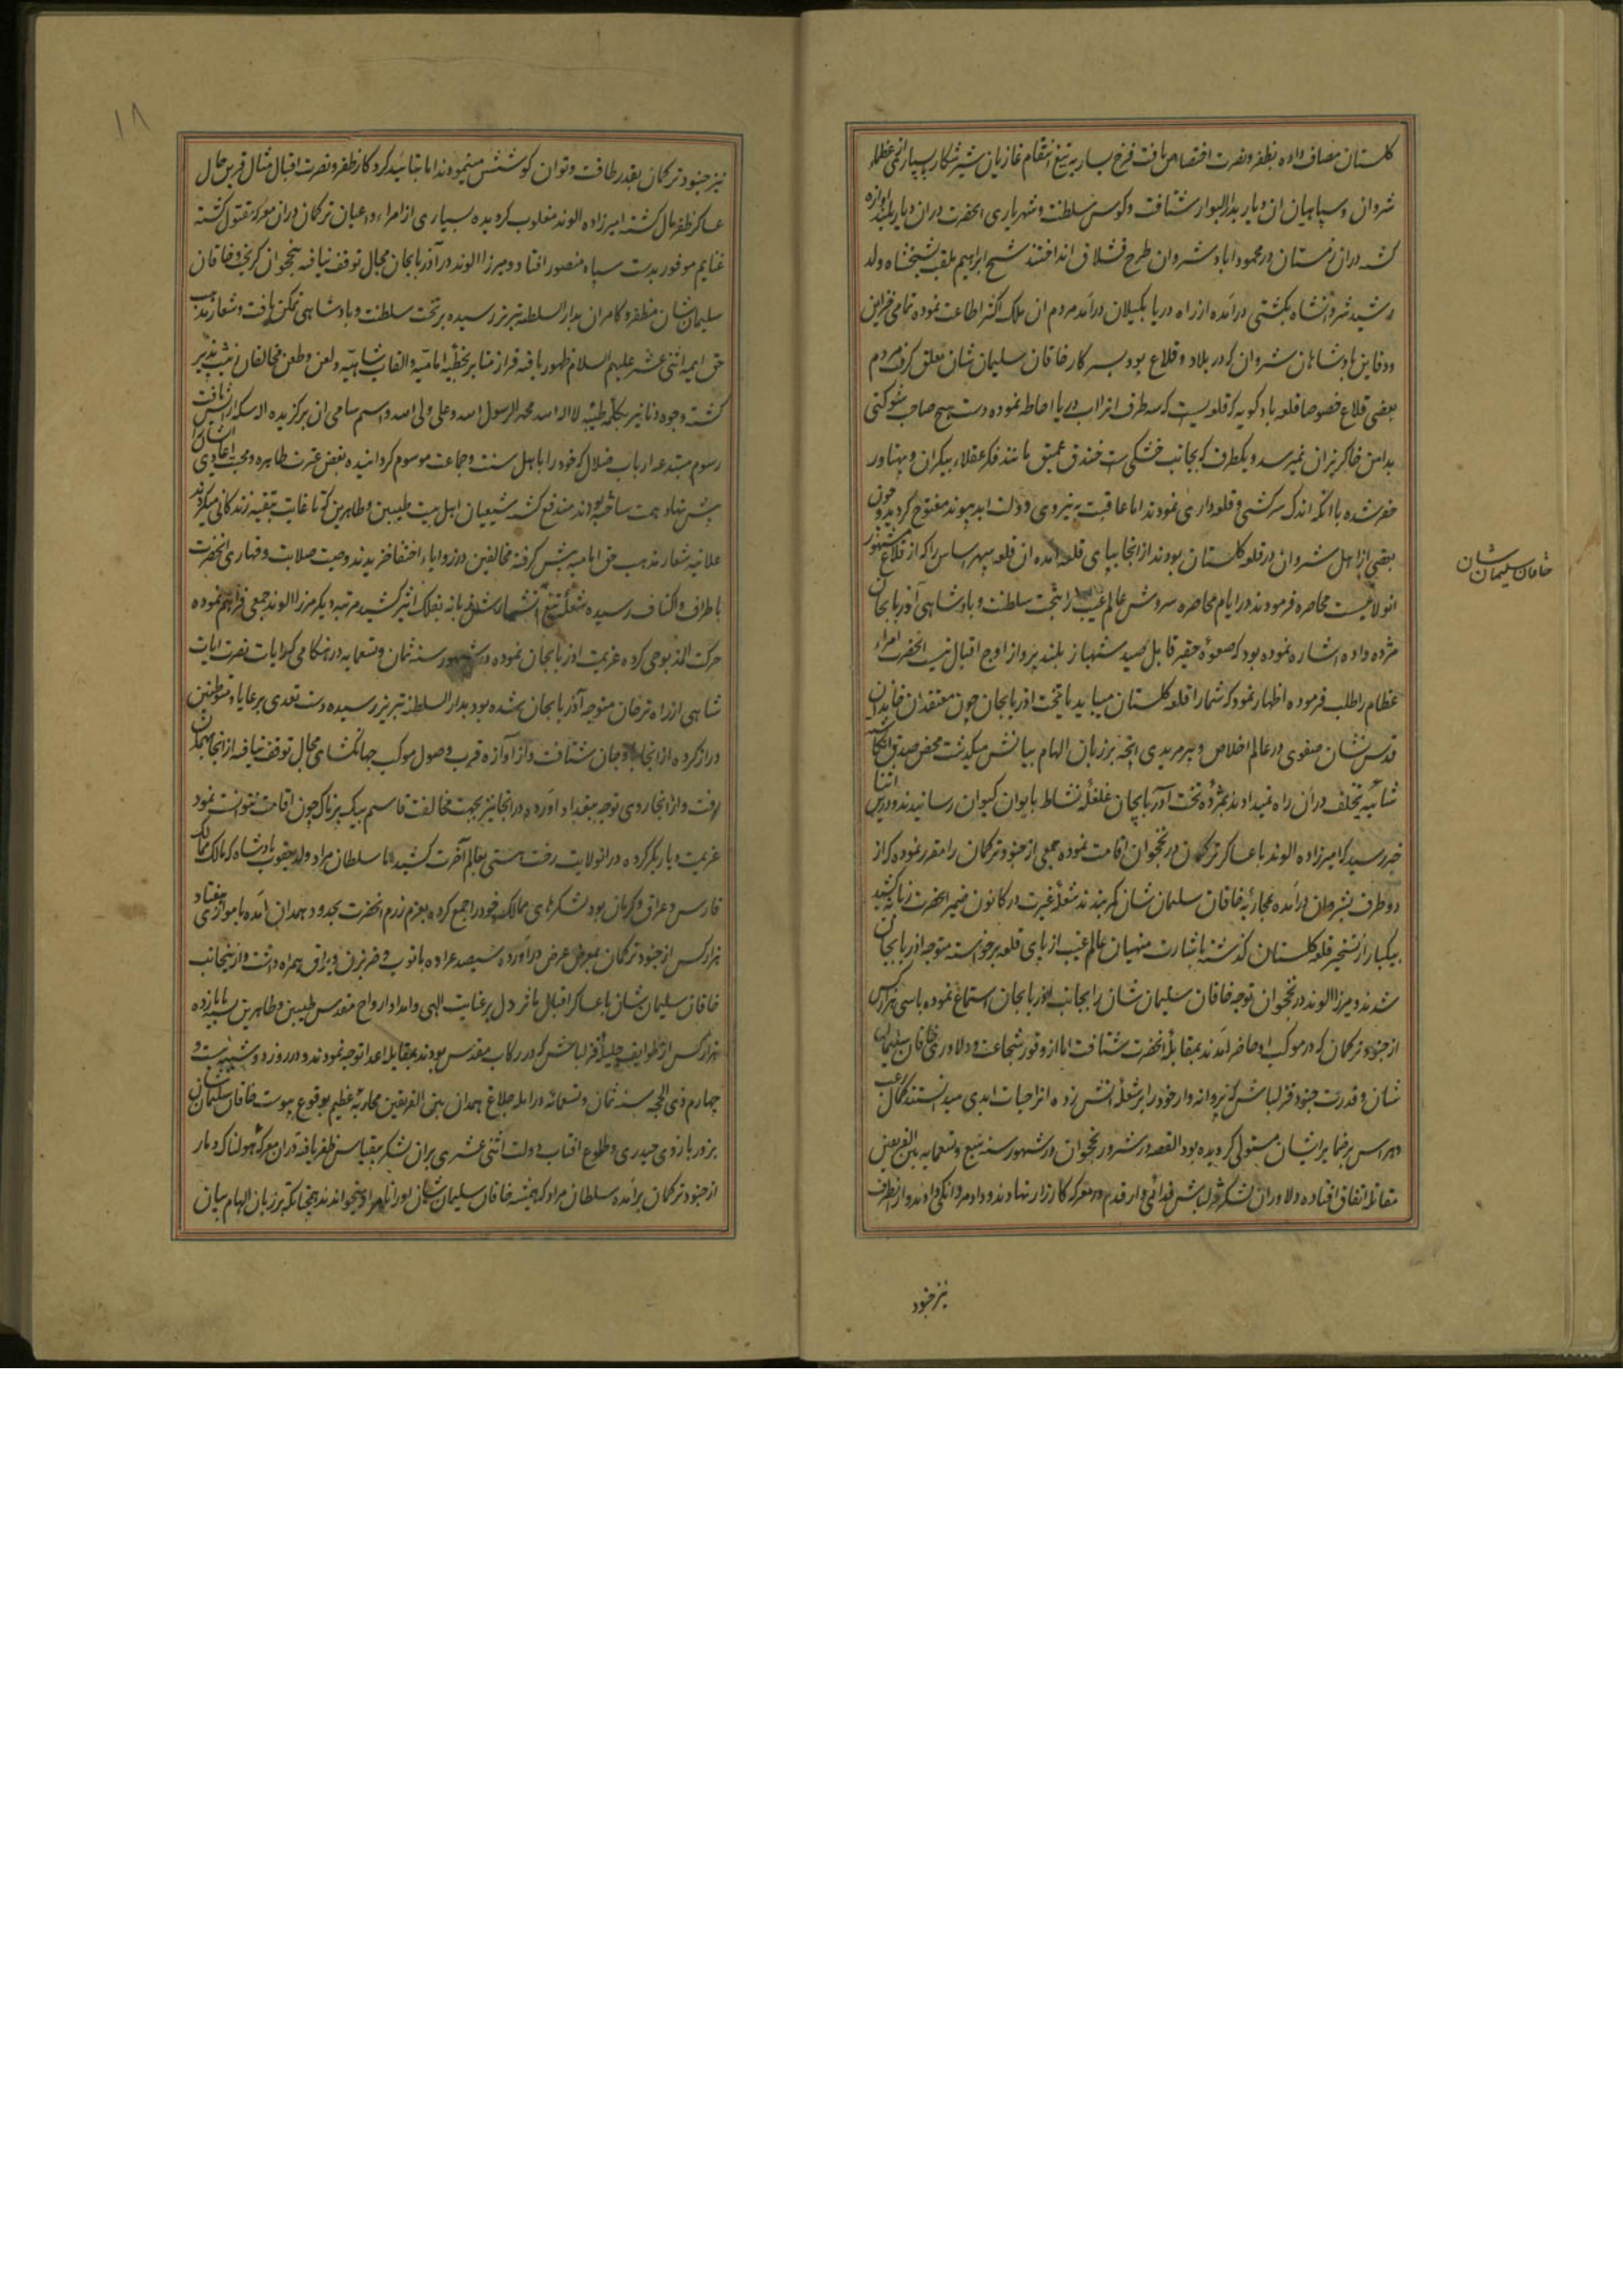 کلستان مصاف داده بظفر و نصرت اختصاص یافت فرخ یسار به تیغ انتقام غازیان شیر شکار سپاری
شروان و سپاهیان ان دیار بدار البوار شتافت و کوس سلطنت و شهریاری انحضرت دران دیار بلند اوازه
کشت دران زمستان در محموداباد شروان طرح قشلاق انداختند شیخ ابراهیم ملقب بشیخشاه ولد
رشید شروانشاه بکشتی درامده از راه دریا بکیلان درامد مردم ان ملک اکثر اطاعت نموده تمامی خزاین
ودفاین پادشاهان شروان که در بلاد و قلاع بود بسرکار خاقان سلیمان شان تعلق کرفت مردم
بعضی قلاع خصوصا قلعه بادکوبه که قلعه ایست که سه طرف انرا اب دریا احاطه نموده دست هیچ صاحب شوکتی
بدامن خاکریز ان نمیرسد و یکطرف که بجانب خشکی است خندق عمیق مانند فکر عقلاء بیکران و پهناور
حفر شده با انکه اندک سرکشی و قلعه داری نمودند اما عاقبت به نیروی دولت ابد پیوند مفتوح کردید و چون
بعضی از اهل شروان در قلعه کلستان بودند از انجا بپای قلعه امده ان قلعه سپهر اساس را که از قلاع مشهور
انولایت است محاصره فرمودند در ایام محاصره سروش عالم غیب را بتخت سلطنت و پادشاهی آذربایجان
مژده داده اشاره نموده بود که صعوه حقیر قابل صید شهباز بلند پرواز اوج اقبال نیست انحضرت امراء
عظام را طلب فرموده اظهار نمود که شما را قلعه کلستان میباید یا تخت اذربایجان چون معتقدان خاندان
قدس نشان صفوی در عالم اخلاص و پیر مریدی انچه بر زبان الهام بیانش میکذشت محض صدق انکاشته
شائبه تخلف دران راه نمیدادند بمژده تخت آذربایجان غلغله نشاط بایوان کیوان رسانیدند و درین اثنا
خبر رسید که امیرزاده الوند با عساکر ترکمان در نخجوان اقامت نموده جمعی از جنود ترکمان را مقرر نموده که از
دو طرف بشروان درآمده بمحاربه خاقان سلیمان شان کمر بندند شعله غیرت در کانون ضمیر انحضرت زبانه کشید
بیکبار از تسخیر قلعه کلستان کذشته بابشارت منهیان عالم غیب از پای قلعه برخواسته متوجه اذربایجان
شدند و میرزا الوند در نخجوان توجه خاقان سلیمان شان را بجانب اذربایجان استماع نموده باسی هزار کس
از جنود ترکمان که در موکب او حاضر آمدند بمقابله انحضرت شتافت اما از وفور شجاعت و دلاوری خاقان سلیمان
شان و قدرت جنود قزلباش که پروانه وار خود را بر شعله آتش زده انرا حیات ابدی میدانستند کمال رعب
و هراس بر ضمایر ایشان مستولی کردیده بود القصه در شرور نخجوان در شهور سنه سبع و تسعمایه بین الفریقین
مقاتله اتفاق افتاده دلاوران لشکر قزلباش فدائی وار قدم در معرکه کارزار نهادند و داد مردانکی دادند و از انطرف
خاقان سلیمان شان
نیز جنود
۱۸
نیز جنود ترکمان بقدر طاقت و توان کوشش مینمودند اما بتائید کردکار ظفر و نصرت اقبال مثال قرین حال
عساکر ظفر مال کشته امیرزاده الوند مغلوب کردیده بسیاری از امراء و اعیان ترکمان دران معرکه مقتول کشته
غنایم موفور بدست سپاه منصور افتاد و میرزا الوند در آذربایجان مجال توقف نیافته بنخجوان کریخت و خاقان
سلیمان شان مظفر و کامران بدار السلطنه تبریز رسیده بر تخت سلطنت و پادشاهی تمکن یافت و شعار مذهب
حق ایمه اثنی عشر علیهم السلام ظهور یافته فراز منابر بخطبه امامیه و القاب شاهیه و لعن و طعن مخالفان زیب پذیر
کشته وجوه دنانیر بکلمه طیبه لا اله الا الله محمد الرسول الله و علی ولی الله و اسم سامی ان برکزیده اله سکه ارایش یافت
رسوم مبتدعه ارباب ضلال که خود را باهل سنت و جماعت موسوم کردانیده بغض عترت طاهره و محبت اعادی ایشانرا
پیش نهاد همت ساخته بودند مندفع کشت شیعیان اهل بیت طیبین و طاهرین که تا غایت بتقیه زندکانی میکردند
علانیه شعار مذهب حق امامیه پیش کرفته مخالفین در زوایاء اختفا خزیدند و صیت صلابت و قهاری انحضرت
باطراف و اکناف رسیده شعله تیغ آتشبارش زبانه بفلک اثیر کشید مرتبه دیکر میرزا الوند جمعی فراهم نموده
حرکت المذبوحی کرده عزیمت اذربایجان نموده در شهور سنه ثمان و تسعمایه در هنکامی که رایات نصرت ایات
شاهی از راه ترجان متوجه آذربایجان شده بود بدار السلطنه تبریز رسیده دست تعدی بر رعایا و متوطنین
دراز کرده از انجا باوجان شتافت و از آوازه قرب وصول موکب جهانکشای مجال توقف نیافته از انجا بهمدان
رفت و از انجا روی توجه ببغداد آورده در انجا نیز بجهت مخالفت قاسم بیک پرناک چون اقامت نتوانست نمود
عزیمت دیاربکر کرده در انولایت رخت هستی بعالم آخرت کشید اما سلطان مراد ولد یعقوب پادشاه که مالک ممالک
فارس و عراق و کرمان بود لشکرهای ممالک خود را جمع کرده بعزم رزم انحضرت بحدود همدان آمده با موازی هفتاد
هزار کس از جنود ترکمان بمعرض عرض درآورده سیصد عراده با توپ و ضرب زن و یراق همراه داشت و از ینجانب
خاقان سلیمان شان با عساکر اقبال ماثر دل بر عنایت الهی و امداد ارواح مقدس طیبین و طاهرین بسته با یازده
هزار کس از طوایف جلیله قزلباش که در رکاب مقدس بودند بمقابله اعدا توجه نمودند و در روز دوشنبه بیست و
چهارم ذی الحجه سنه ثمان و تسعمائه در المه بلاغ همدان بین الفریقین محاربه عظیم بوقوع پیوست خاقان سلیمان شان
بزور بازوی حیدری و طلوع افتاب دولت اثنی عشری بران لشکر بیقیاس ظفر یافته دران معرکه هولناک دمار
از جنود ترکمان برآمده سلطان مراد که همیشه خاقان سلیمان شان او را نامراد میخواندند همچنانکه بر زبان الهام بیان